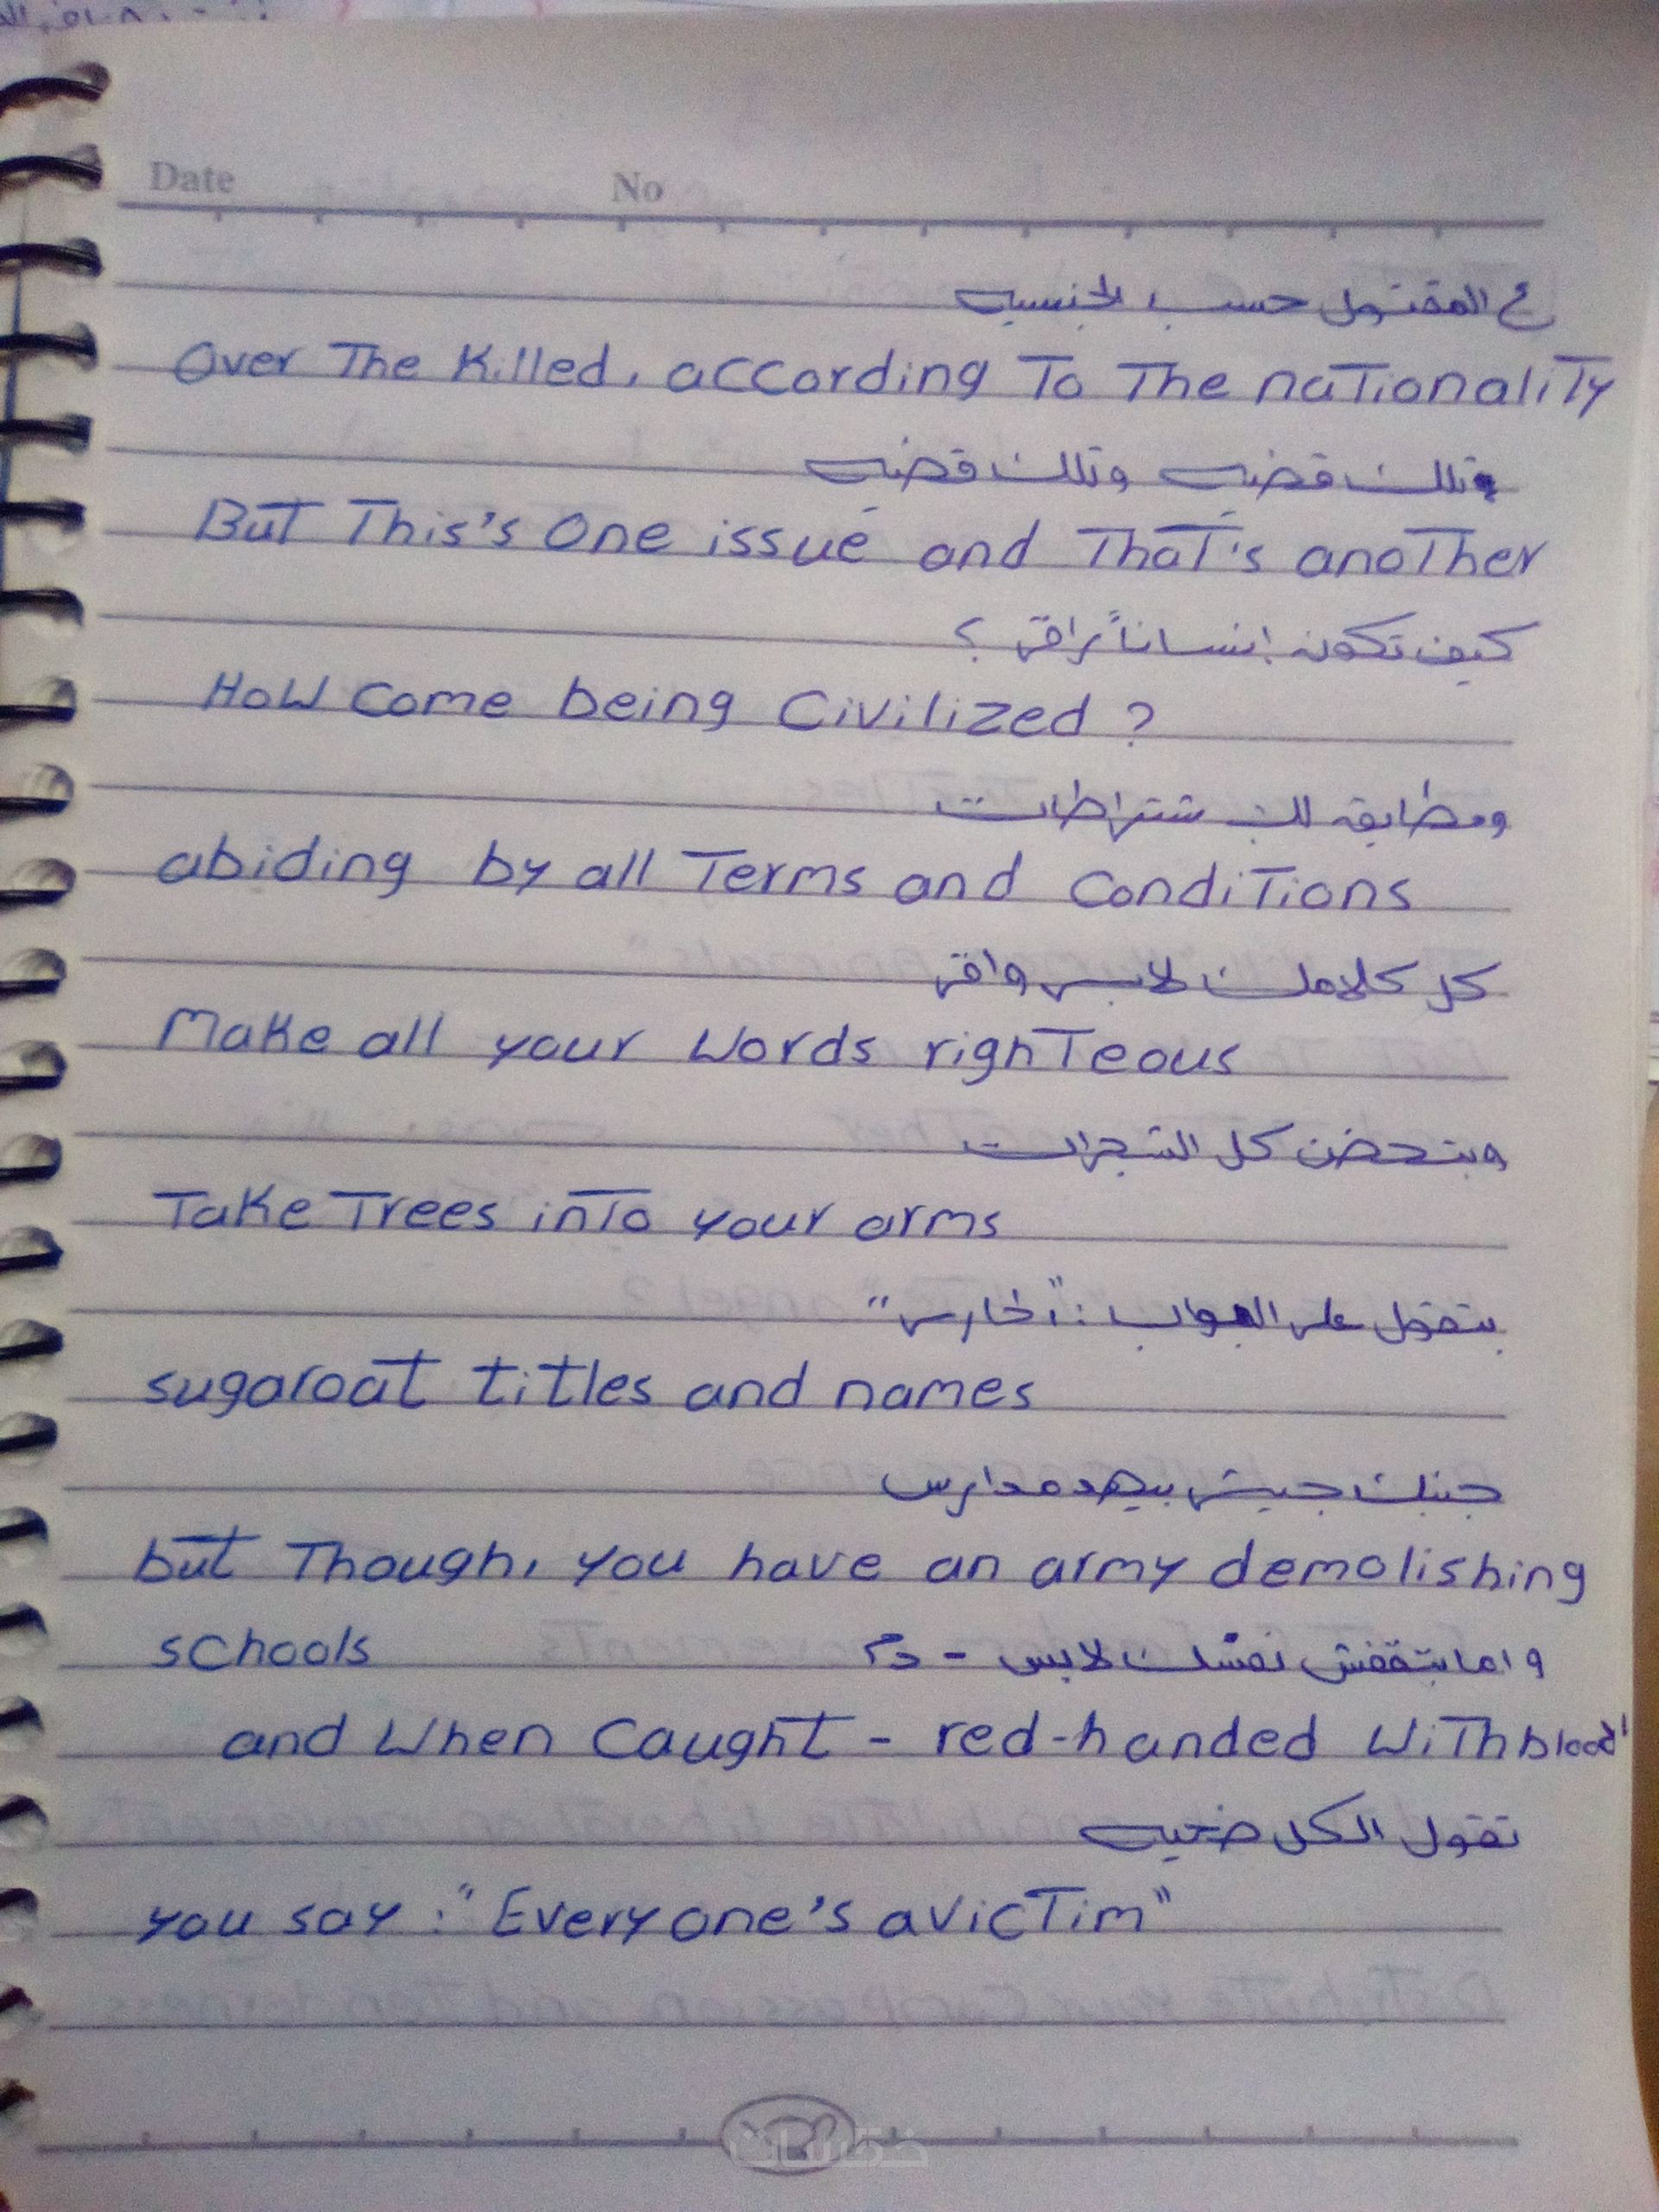 Date No
ع المقتول حسب الجنسيه
Over The Killed, according To The naTionaliTy
وتلك قضيه وتلك قضيه
BuT This's One issue and ThaT's anoTher
كيف تكون إنساناً راقى ؟
How Come being Civilized ?
ومطابق للـ شتراطات
abiding by all Terms and CondiTions
كل كلامك لابس واقى
Make all your Words righTeous
وبتحضن كل الشجرات
Take Trees inTo your arms
بتقول على البواب : "حارس"
sugaroat titles and names
جنبك جيش بيهد مدارس
but Though, you have an army demolishing
schools
و اما بتقفش نفسك لابس - دم
and When Caught - red-handed WiTh blood'
تقول الكل ضحيه
you say : "Everyone's a vicTim"
خمسات